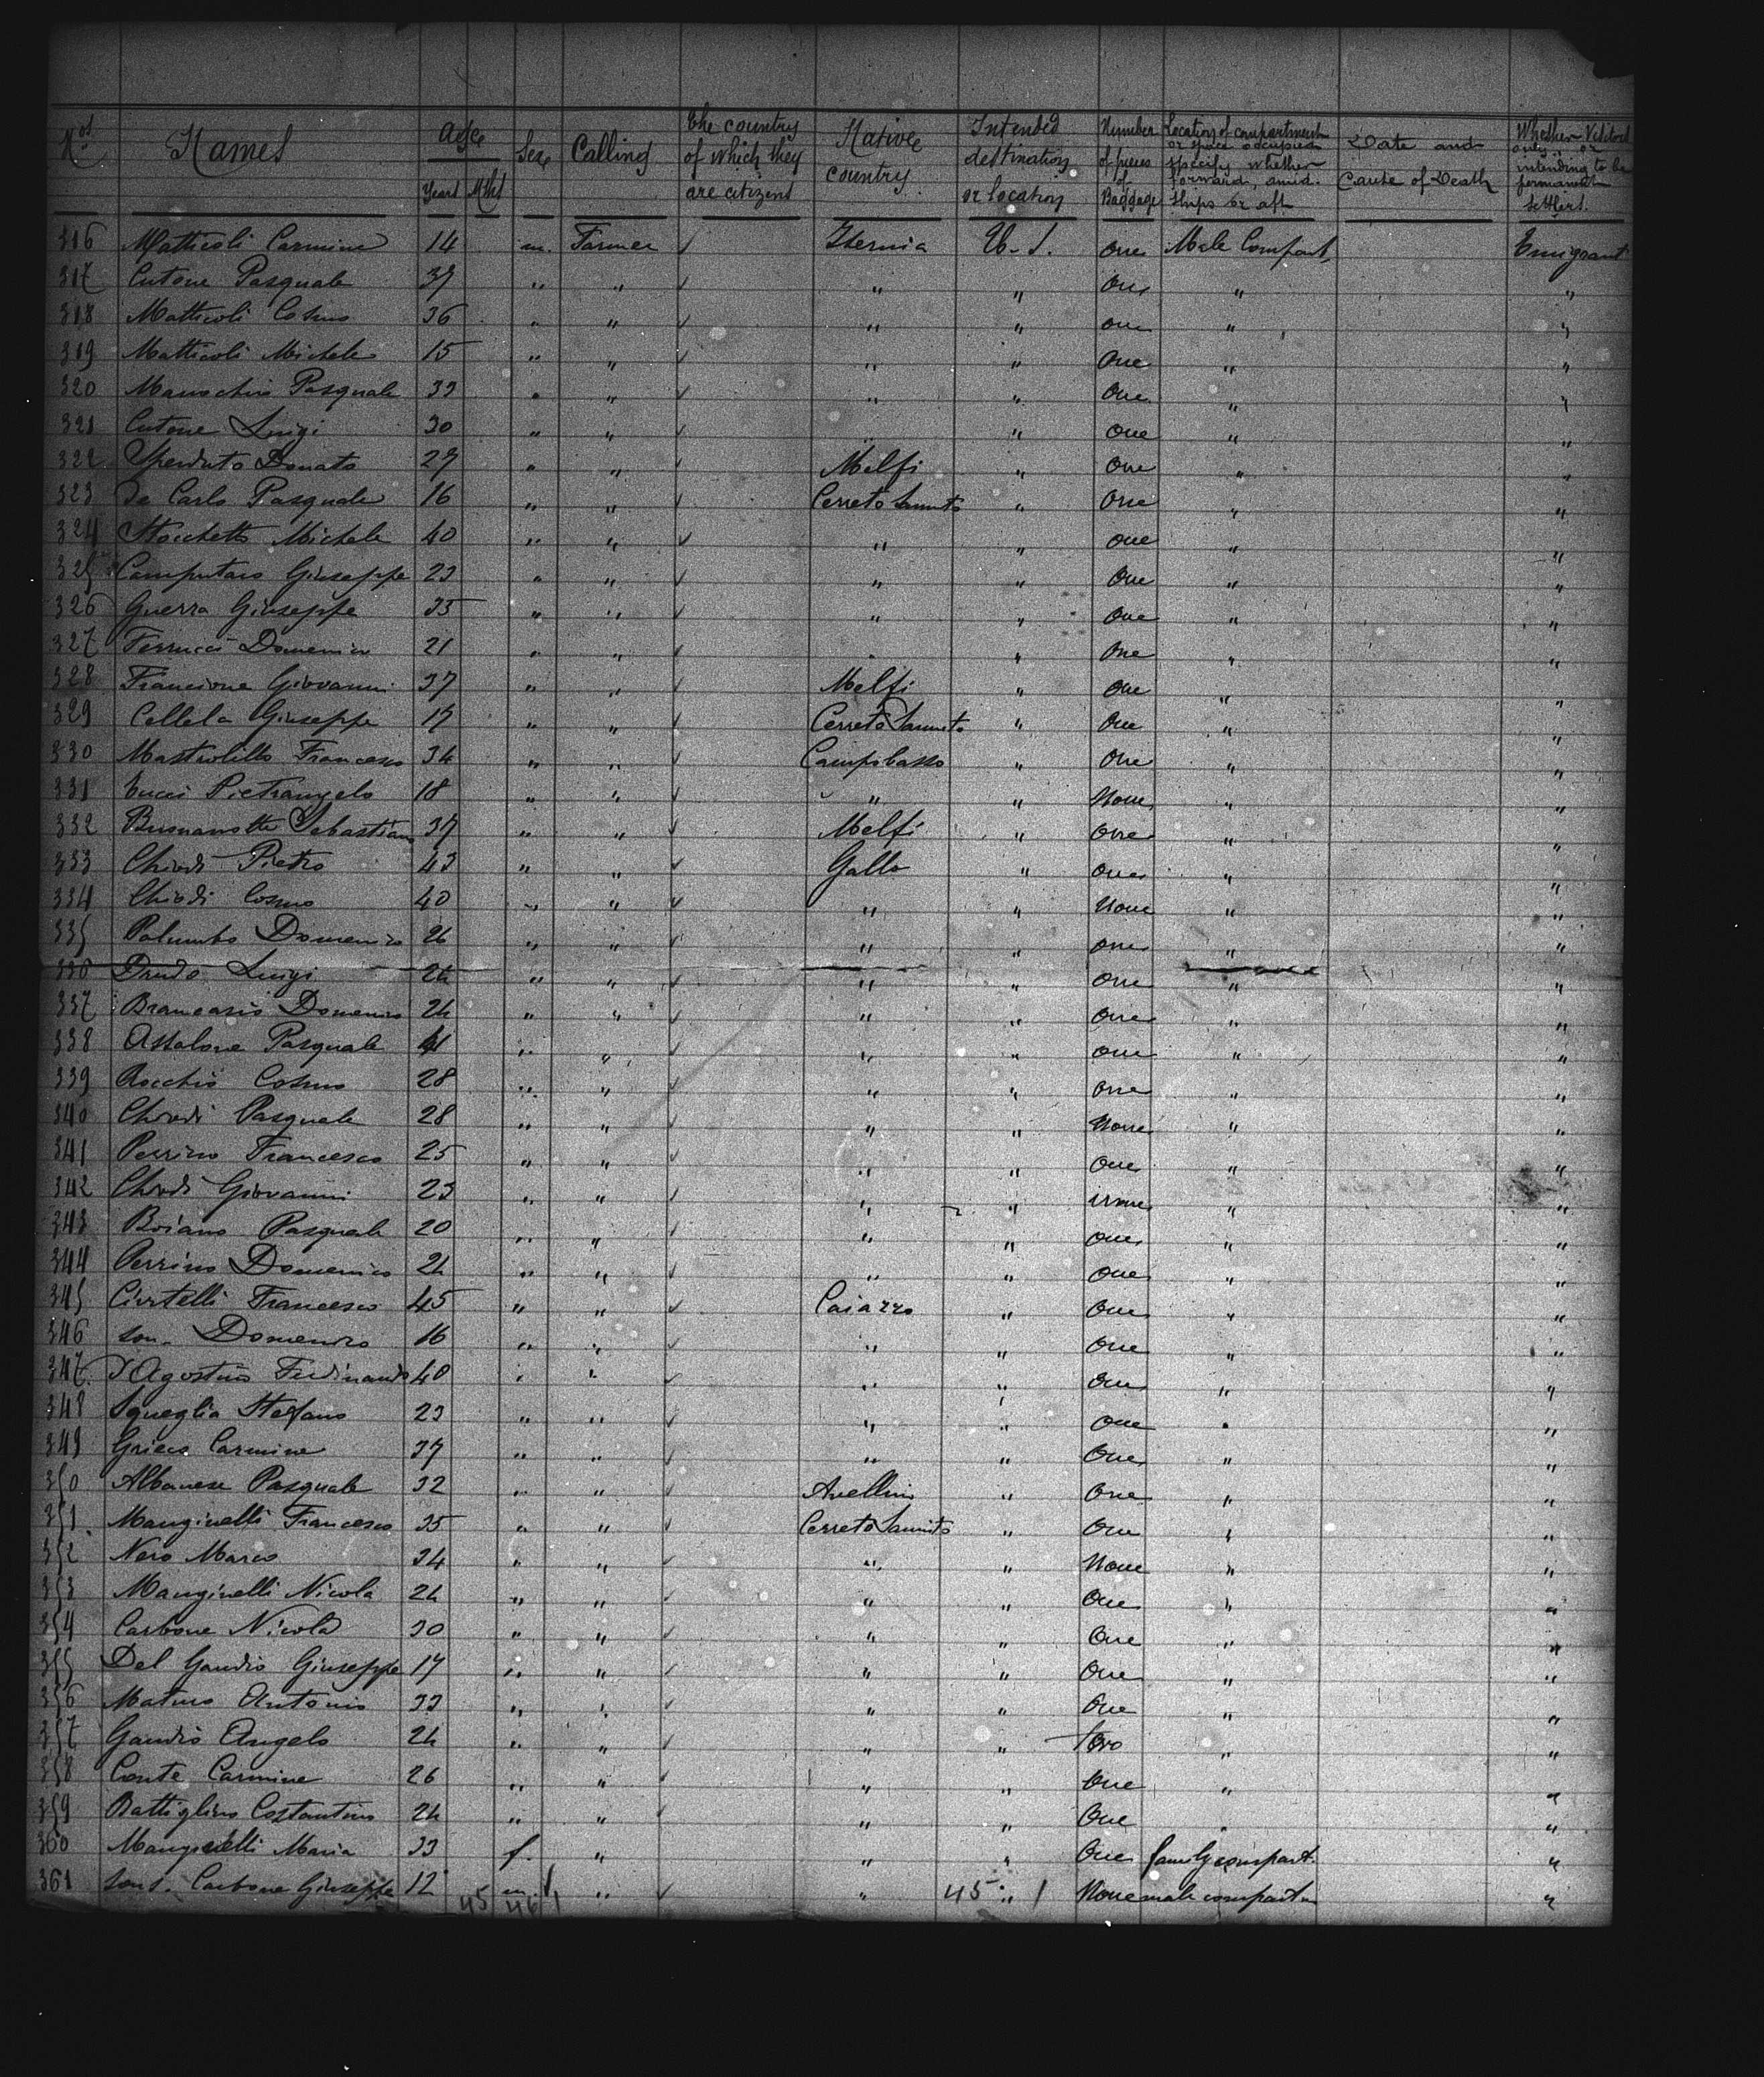 Nos. Names Age Years Mths Sex Calling The country of which they are citizens Native country Intended destination or location Number of pieces of Baggage Location of compartment or space occupied specify whether forward, amid. ships or aft Date and Cause of Death Whether Visitors only or intending to be permanent Settlers.
316 Matticoli Carmine 14 m. Farmer ✓ Isernia U.S. One Male Compart. Emigrant
317 Cutone Pasquale 37 " " ✓ " " One " "
318 Matticoli Cosmo 36 " " ✓ " " one " "
319 Matticoli Michele 15 " " ✓ " " One " "
320 Manochio Pasquale 33 " " ✓ " " One " "
321 Cutone Luigi 30 " " ✓ " " One " "
322 Sperduto Donato 27 " " ✓ Melfi " One " "
323 De Carlo Pasquale 16 " " ✓ Cerreto Sannito " One " "
324 Stocchetti Michele 40 " " ✓ " " One " "
325 Giuseppe 23 " " ✓ " " One " "
326 Guerra Giuseppe 35 " " ✓ " " One " "
327 Ferrucci Domenico 21 " " ✓ " " One " "
328 Francione Giovanni 37 " " ✓ Melfi " One " "
329 Collela Giuseppe 17 " " ✓ Cerreto Sannito " One " "
330 Mastrolillo Francesco 34 " " ✓ Campobasso " One " "
331 Tucci Pietrangelo 18 " " ✓ " " None " "
332 Buonanotte Sebastiano 37 " " ✓ Melfi " One " "
333 Chiodi Pietro 43 " " ✓ Gallo " One " "
334 Chiodi Cosmo 40 " " ✓ " " None " "
335 Palumbo Domenico 26 " " ✓ " " One " "
336 Luigi 24 " " ✓ " " One " "
337 Brancasio Domenico 24 " " ✓ " " One " "
338 Assalone Pasquale 41 " " ✓ " " One " "
339 Rocchio Cosmo 28 " " ✓ " " One " "
340 Chiodi Pasquale 28 " " ✓ " " None " "
341 Perrino Francesco 25 " " ✓ " " One " "
342 Chiodi Giovanni 23 " " ✓ " " " "
343 Boiano Pasquale 20 " " ✓ " " One " "
344 Perrino Domenico 24 " " ✓ " " One " "
345 Civitelli Francesco 45 " " ✓ Caiazzo " One " "
346 son. Domenico 16 " " ✓ " " One " "
347 D'Agostino Ferdinando 40 " " ✓ " " One " "
348 Squeglia Stefano 23 " " ✓ " " One " "
349 Grieco Carmine 37 " " ✓ " " One " "
350 Albanese Pasquale 32 " " ✓ Avellino " One " "
351 Manginelli Francesco 35 " " ✓ Cerreto Sannito " One " "
352 Nero Marco 34 " " ✓ " " None " "
353 Manginelli Nicola 24 " " ✓ " " One " "
354 Carbone Nicola 30 " " ✓ " " One " "
355 Del Gaudio Giuseppe 17 " " ✓ " " One " "
356 Maturo Antonio 33 " " ✓ " " One " "
357 Gaudio Angelo 24 " " ✓ " " Two " "
358 Conte Carmine 26 " " ✓ " " One " "
359 Battiglino Costantino 24 " " ✓ " " One " "
360 Manginelli Maria 33 f. " " " One family compart. "
361 sons. Carbone Giuseppe 12 m. " ✓ " " None male compart. "
45 46 1 45 1